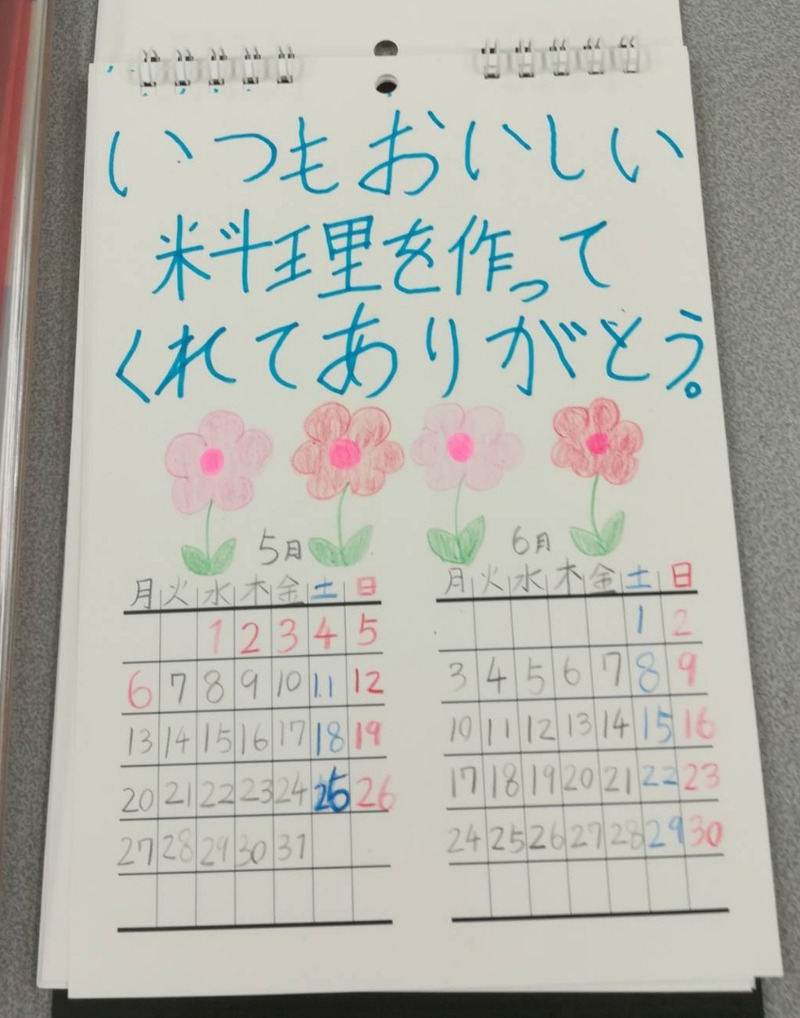 いつもおいしい
料理を作って
くれてありがとう。
5月
月 火 水 木 金 土 日
1 2 3 4 5
6 7 8 9 10 11 12
13 14 15 16 17 18 19
20 21 22 23 24 25 26
27 28 29 30 31
6月
月 火 水 木 金 土 日
1 2
3 4 5 6 7 8 9
10 11 12 13 14 15 16
17 18 19 20 21 22 23
24 25 26 27 28 29 30